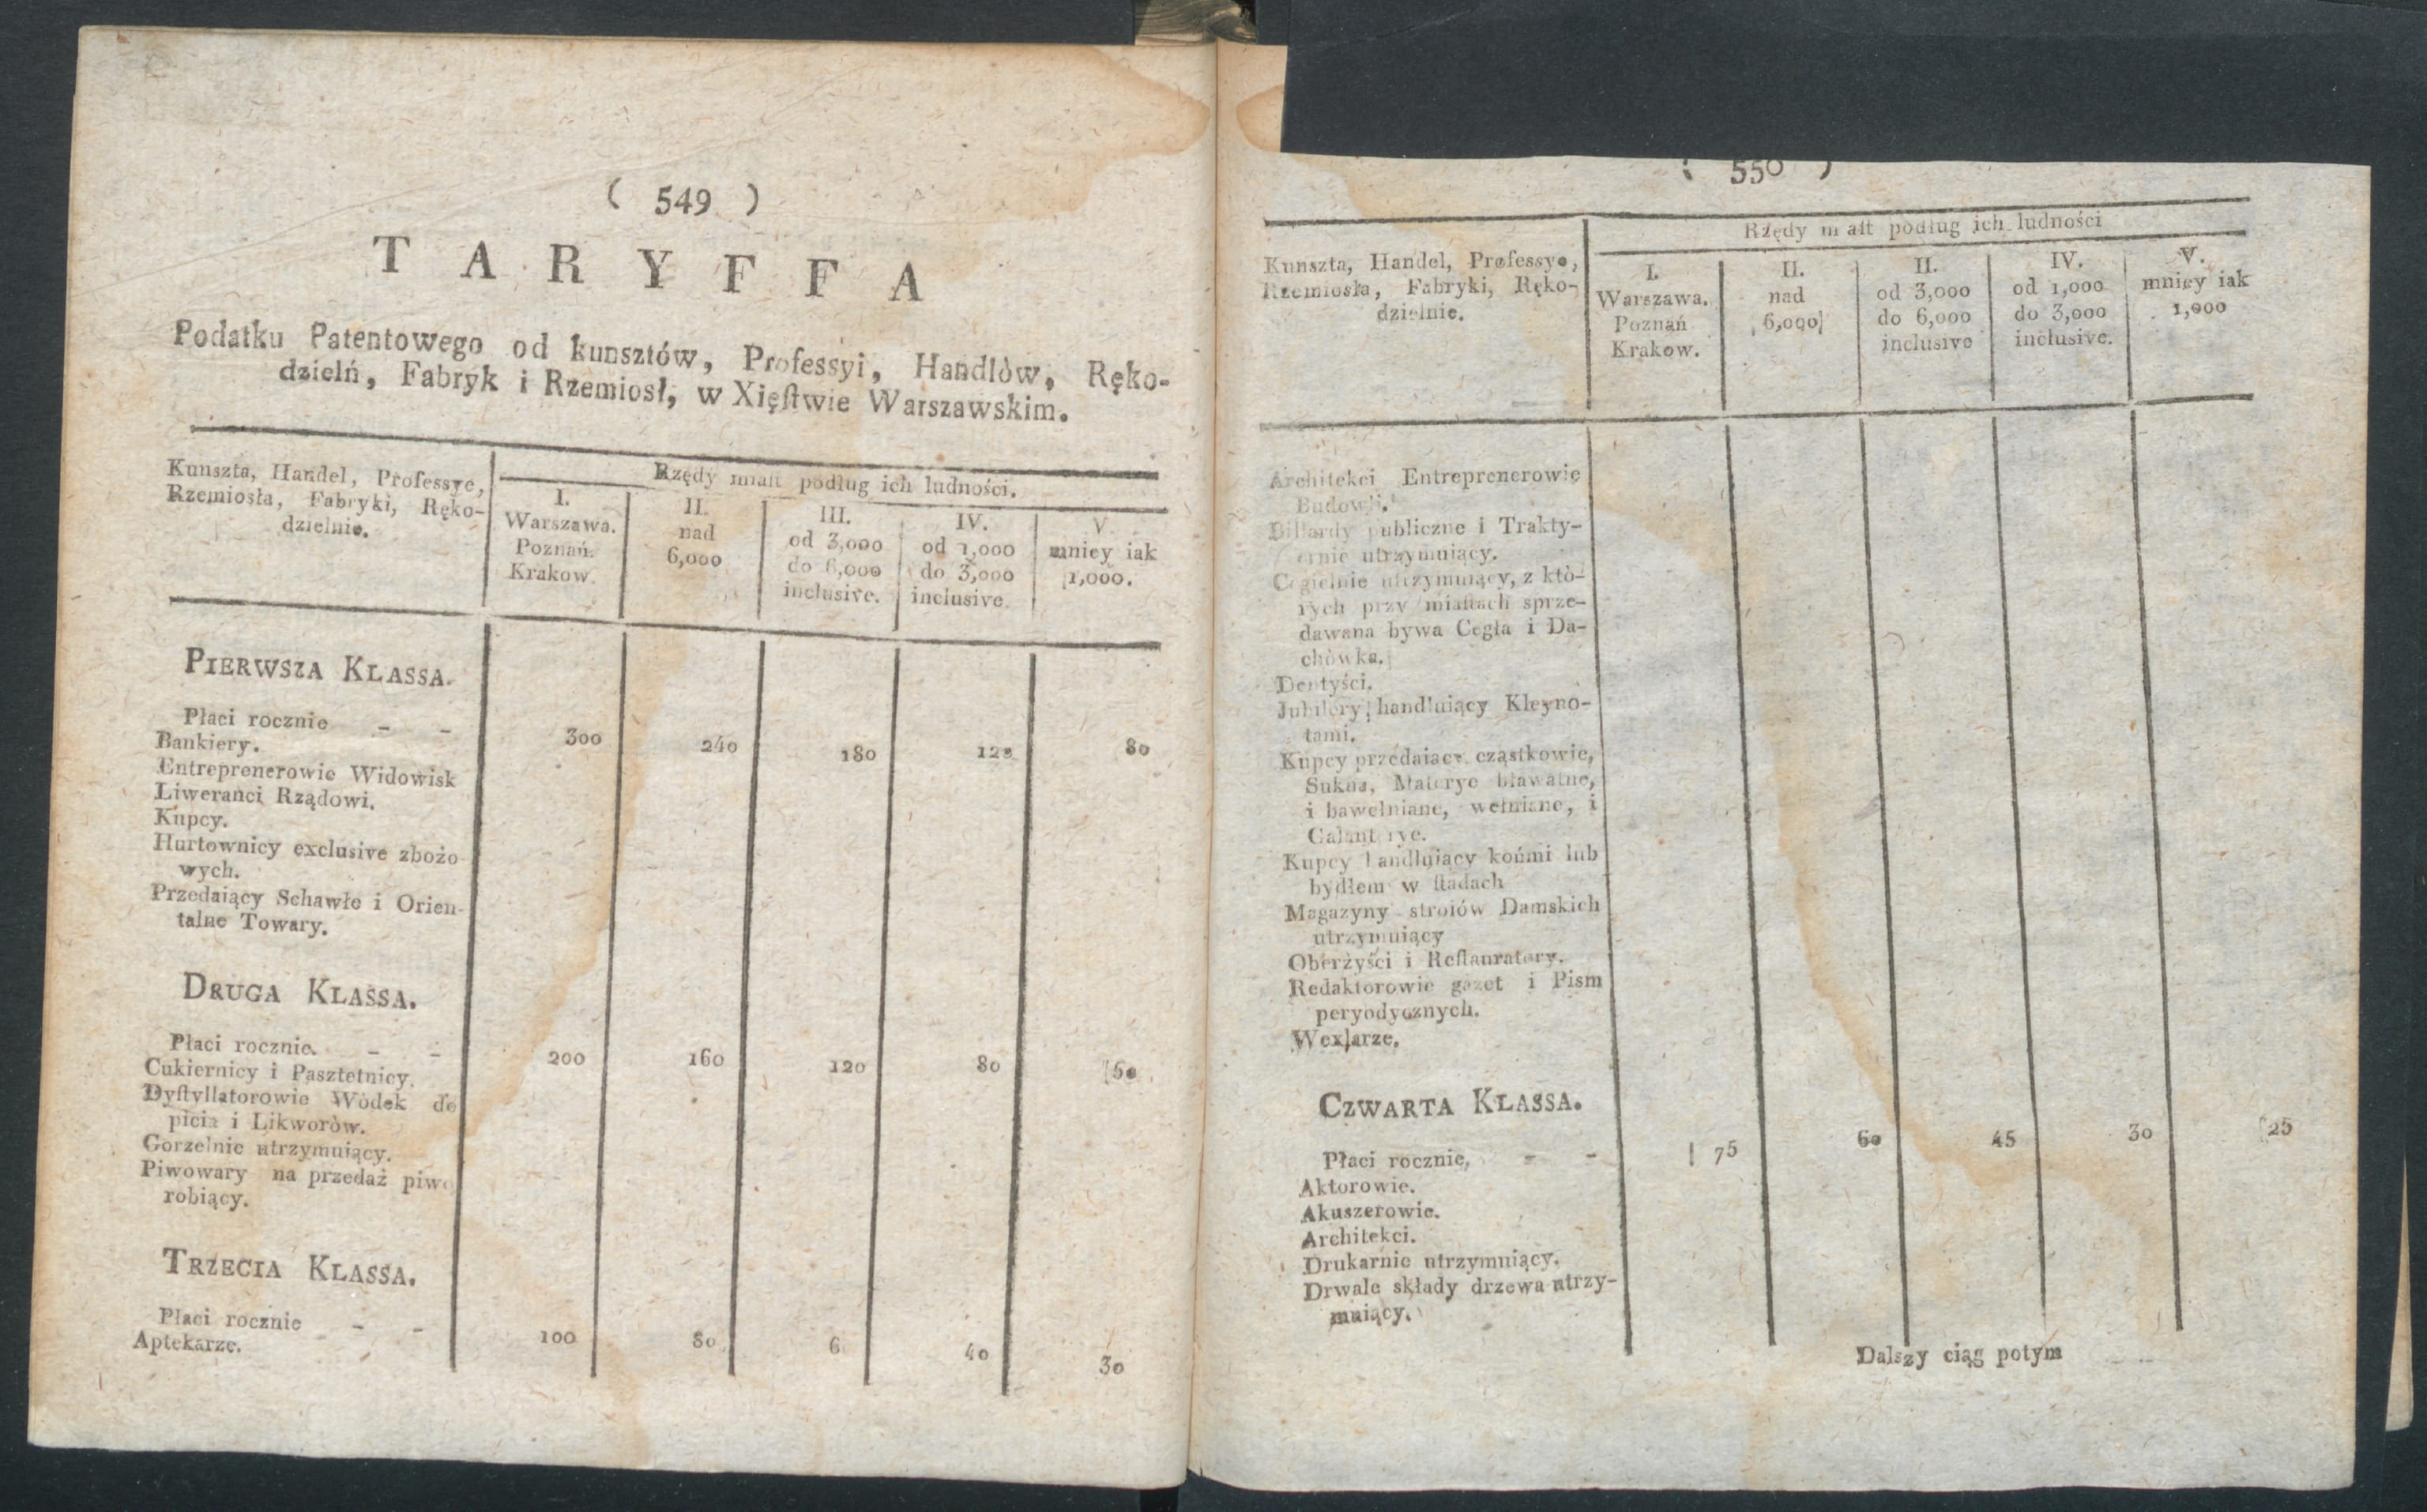 ( 549 )
TARYFFA
Podatku Patentowego od kunsztów, Professyi, Handlòw, Ręko-
dzielń, Fabryk i Rzemiosł, w Xięſtwie Warszawskim.
Kunszta, Handel, Professye,
Rzemiosła, Fabryki, Ręko-
dzielnie.
Rzędy miaſt podług ich ludności.
I. Warszawa. Poznań. Krakow.
II. nad 6,000
III. od 3,000 do 6,000 inclusive.
IV. od 1,000 do 3,000 inclusive.
V mniey iak 1,000.
PIERWSZA KLASSA.
Płaci rocznie - - 300 240 180 120 80
Bankiery.
Entreprenerowie Widowisk
Liweranci Rządowi.
Kupcy.
Hurtownicy exclusive zbożo
wych.
Przedaiący Schawle i Orien-
talne Towary.
DRUGA KLASSA.
Płaci rocznie. - - 200 160 120 80
Cukiernicy i Pasztetnicy.
Dyſtyllatorowie Wòdek do
picia i Likworòw.
Gorzelnie utrzymuiący.
Piwowary na przedaż piwo
robiący.
TRZECIA KLASSA.
Płaci rocznie - - 100 80 6 40 30
Aptekarze.
( 550 )
Kunszta, Handel, Professye,
Rzemiosła, Fabryki, Ręko-
dzielnie.
Rzędy miaſt podług ich ludności
I. Warszawa. Poznań Krakow.
II. nad 6,000
II. od 3,000 do 6,000 inclusive
IV. od 1,000 do 3,000 inclusive.
V. mniey iak 1,000
Architekci Entreprenerowie
Budowli.
Billardy publiczne i Trakty-
ernie utrzymuiący.
Cegielnie utrzymuiący, z któ-
rych przy miaſtach sprze-
dawana bywa Cegła i Da-
chòwka.
Dentyści.
Jubilery handluiący Kleyno-
tami.
Kupcy przedaiący cząstkowie,
Sukna, Materye bławatne,
i bawełniane, wełniane, i
Galanterye.
Kupcy handluiący końmi lub
bydłem w ſtadach
Magazyny stroiów Damskich
utrzymuiący
Oberżyści i Reſtauratory.
Redaktorowie gazet i Pism
peryodycznych.
Wexlarze.
CZWARTA KLASSA.
Płaci rocznie, - - 75 60 45 30 25
Aktorowie.
Akuszerowie.
Architekci.
Drukarnie utrzymuiący.
Drwale składy drzewa utrzy-
muiący.
Dalszy ciąg potym